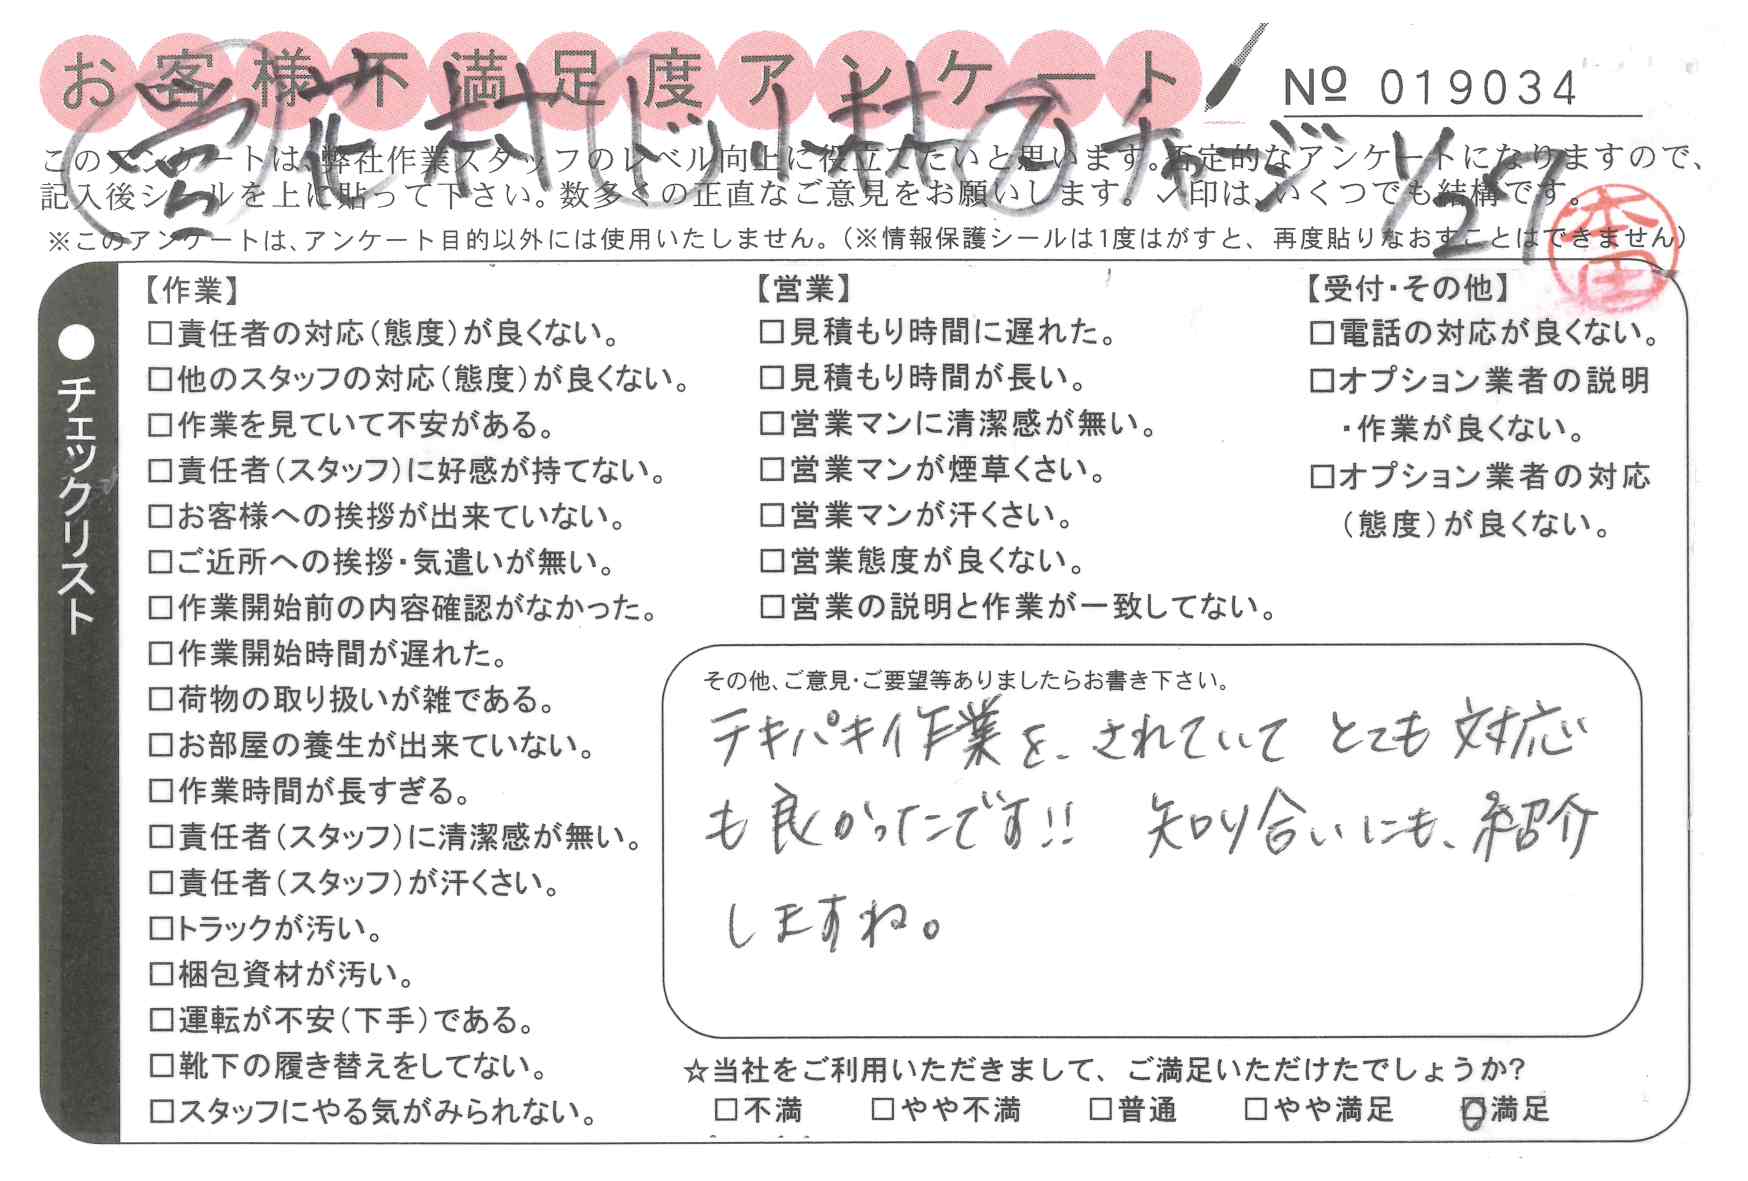 お客様不満足度アンケート
Nº 019034
このアンケートは、弊社作業スタッフのレベル向上に役立てたいと思います。否定的なアンケートになりますので、
記入後シールを上に貼って下さい。数多くの正直なご意見をお願いします。✓印は、いくつでも結構です。
※このアンケートは、アンケート目的以外には使用いたしません。(※情報保護シールは1度はがすと、再度貼りなおすことはできません)
1/27
本田
●チェックリスト
【作業】
□責任者の対応(態度)が良くない。
□他のスタッフの対応(態度)が良くない。
□作業を見ていて不安がある。
□責任者(スタッフ)に好感が持てない。
□お客様への挨拶が出来ていない。
□ご近所への挨拶・気遣いが無い。
□作業開始前の内容確認がなかった。
□作業開始時間が遅れた。
□荷物の取り扱いが雑である。
□お部屋の養生が出来ていない。
□作業時間が長すぎる。
□責任者(スタッフ)に清潔感が無い。
□責任者(スタッフ)が汗くさい。
□トラックが汚い。
□梱包資材が汚い。
□運転が不安(下手)である。
□靴下の履き替えをしてない。
□スタッフにやる気がみられない。
【営業】
□見積もり時間に遅れた。
□見積もり時間が長い。
□営業マンに清潔感が無い。
□営業マンが煙草くさい。
□営業マンが汗くさい。
□営業態度が良くない。
□営業の説明と作業が一致してない。
【受付・その他】
□電話の対応が良くない。
□オプション業者の説明
・作業が良くない。
□オプション業者の対応
(態度)が良くない。
その他、ご意見・ご要望等ありましたらお書き下さい。
テキパキ作業を、されていて とても 対応
も良かったです!! 知り合いにも、紹介
しますね。
☆当社をご利用いただきまして、ご満足いただけたでしょうか?
□不満 □やや不満 □普通 □やや満足 □満足